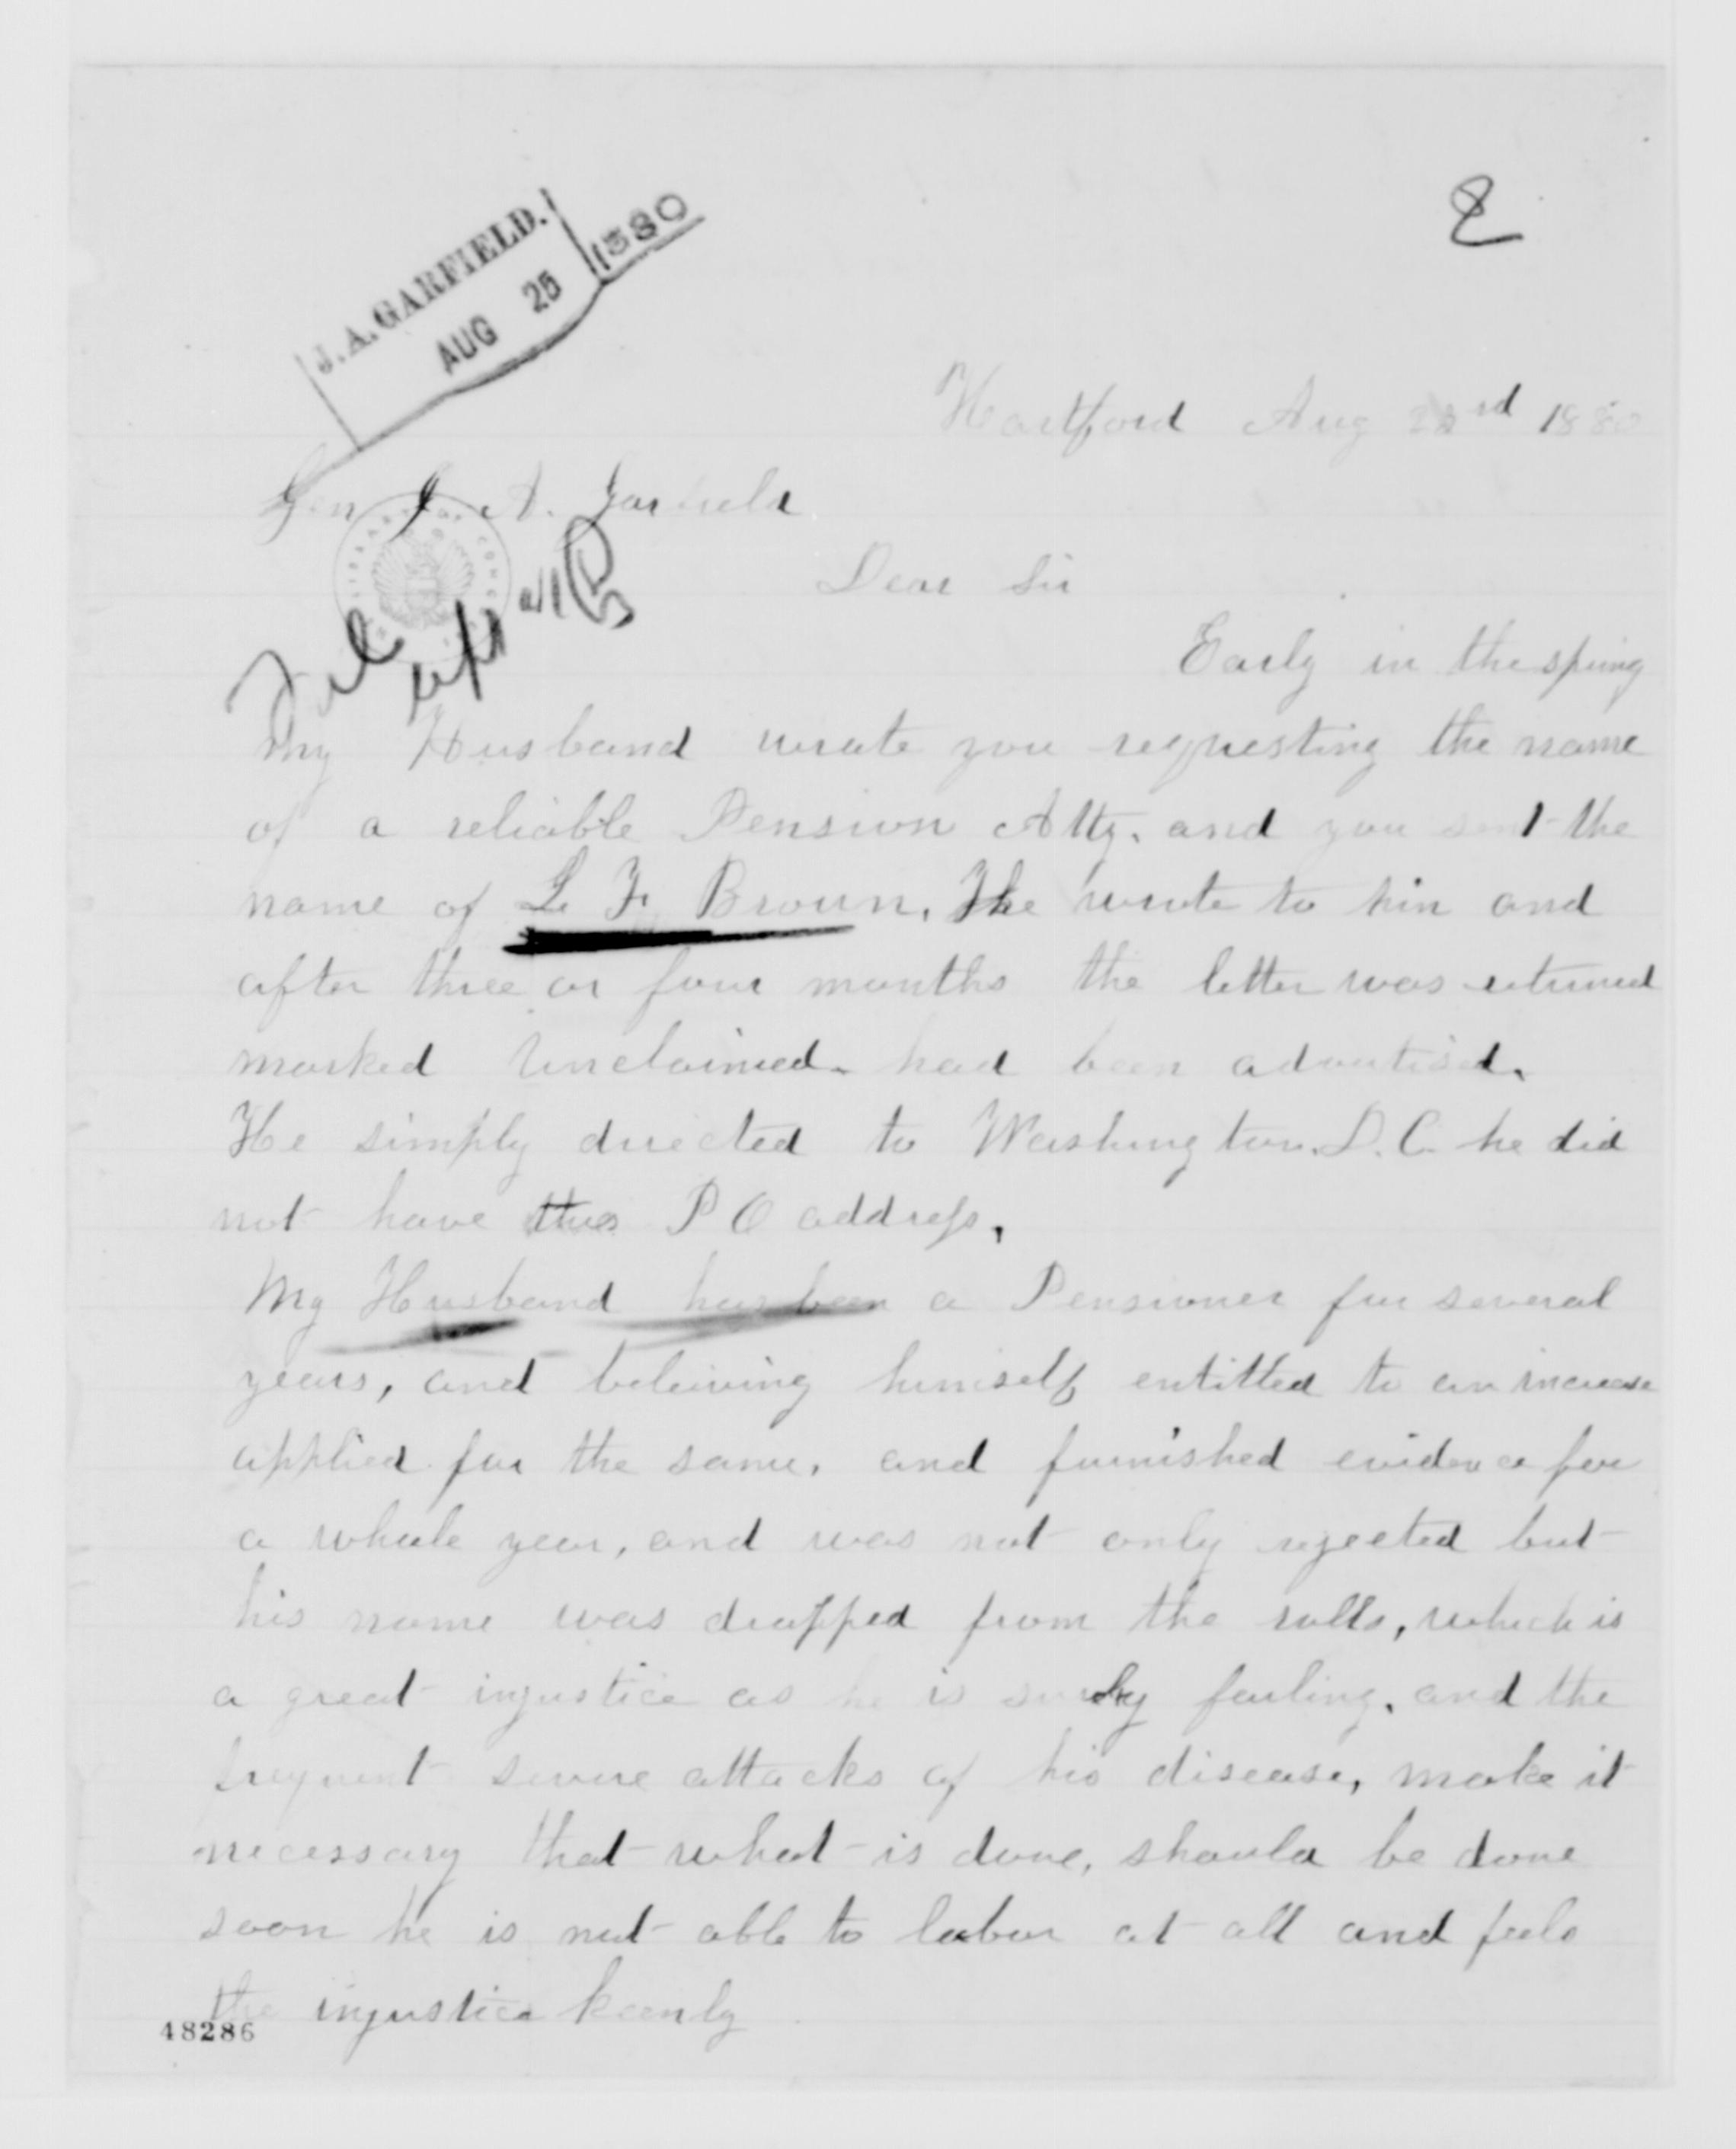 E
J. A. GARFIELD.
AUG 25 1880
Hartford Aug 23rd 1880
Gen J. A. Garfield
LIBRARY OF CONGRESS
Dear Sir
File
Early in the spring
My Husband wrote you requesting the name
of a reliable Pension Atty. and you sent the
name of L F Brown. He wrote to him and
after three or four months the letter was returned
marked Unclaimed. had been advertised.
He simply directed to Washington. D. C. he did
not have the P O address.
My Husband has been a Pensioner for several
years, and beleiving himself entitled to an increase
applied for the same, and furnished evidence for
a whole year, and was not only rejected but
his name was dropped from the rolls, which is
a great injustice as he is surely failing, and the
frequent severe attacks of his disease, make it
necessary that what is done, should be done
soon he is not able to labor at all and feels
the injustice keenly
48286